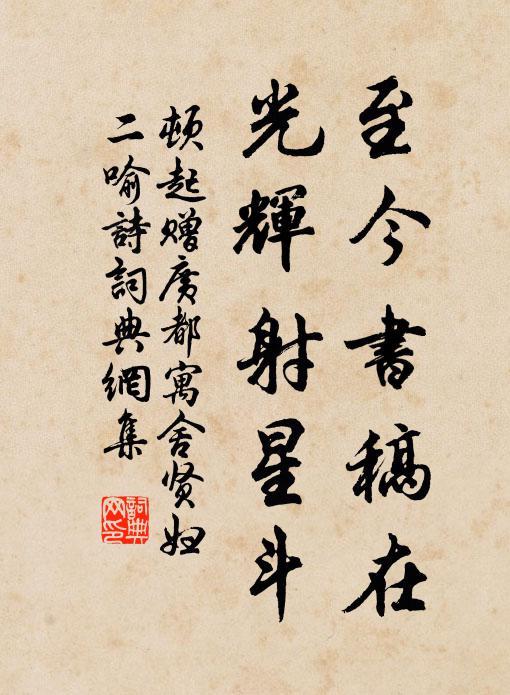 至今書稿在
光輝射星斗
頓起赠廣都寓舍贤妇
二喻詩詞典網集
詞典
网印